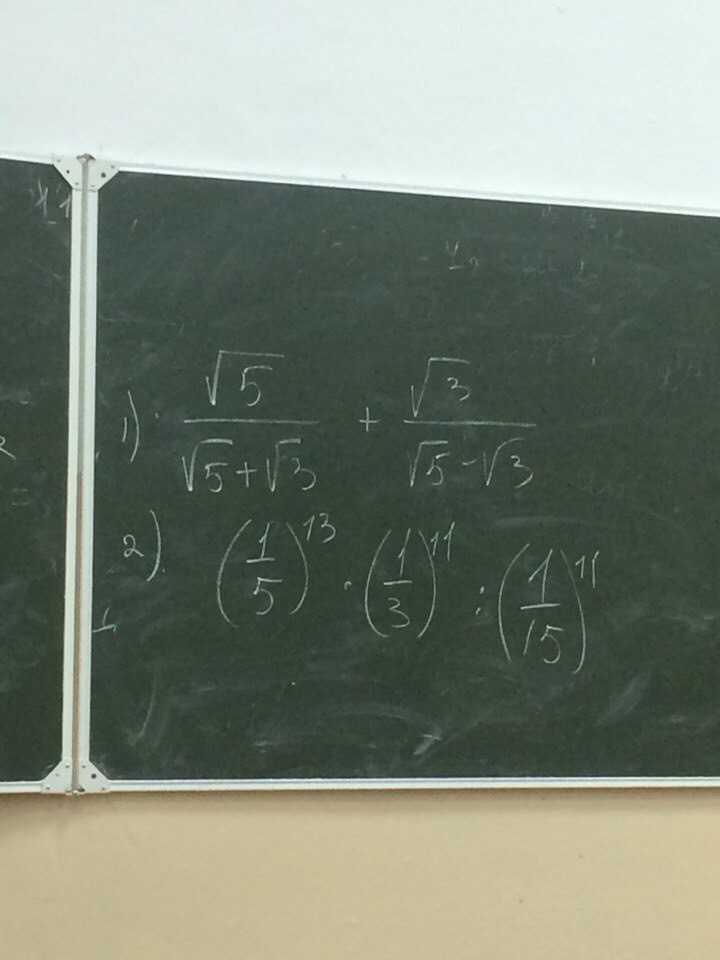 1) √5/(√5+√3) + √3/(√5-√3)
2) (1/5)^13 · (1/3)^11 : (1/15)^11